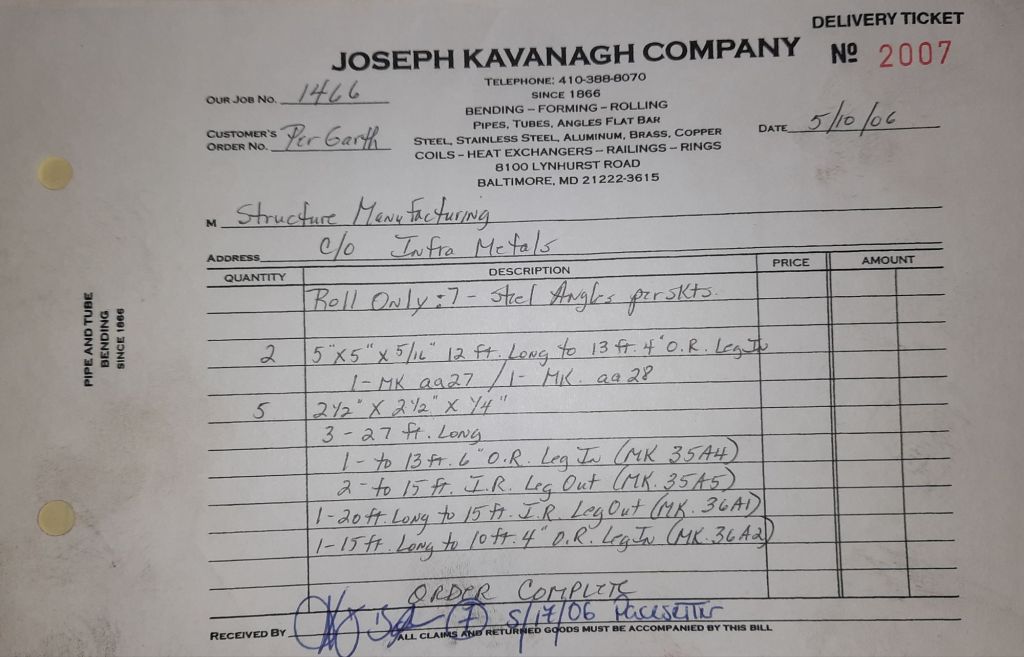 DELIVERY TICKET
JOSEPH KAVANAGH COMPANY
Nº 2007
TELEPHONE: 410-388-8070
SINCE 1866
BENDING – FORMING – ROLLING
PIPES, TUBES, ANGLES FLAT BAR
STEEL, STAINLESS STEEL, ALUMINUM, BRASS, COPPER
COILS – HEAT EXCHANGERS – RAILINGS – RINGS
8100 LYNHURST ROAD
BALTIMORE, MD 21222-3615
OUR JOB NO. 1466
CUSTOMER'S ORDER NO. Per Garth
DATE 5/10/06
M Structure Manufacturing
ADDRESS c/o Infra Metals
QUANTITY DESCRIPTION PRICE AMOUNT
Roll Only: 7 - Steel Angles per skts.
2 5" X 5" X 5/16" 12 ft. Long to 13 ft. 4" O.R. Leg In
1 - MK aa27 / 1 - MK. aa28
5 2 1/2" X 2 1/2" X 1/4"
3 - 27 ft. Long
1 - to 13 ft. 6" O.R. Leg In (MK 35A4)
2 - to 15 ft. I.R. Leg Out (MK. 35A5)
1 - 20 ft. Long to 15 ft. I.R. Leg Out (MK. 36A1)
1 - 15 ft. Long to 10 ft. 4" O.R. Leg In (MK. 36A2)
ORDER COMPLETE
RECEIVED BY (7) 5/17/06 Pacesetter
ALL CLAIMS AND RETURNED GOODS MUST BE ACCOMPANIED BY THIS BILL
PIPE AND TUBE
BENDING
SINCE 1866